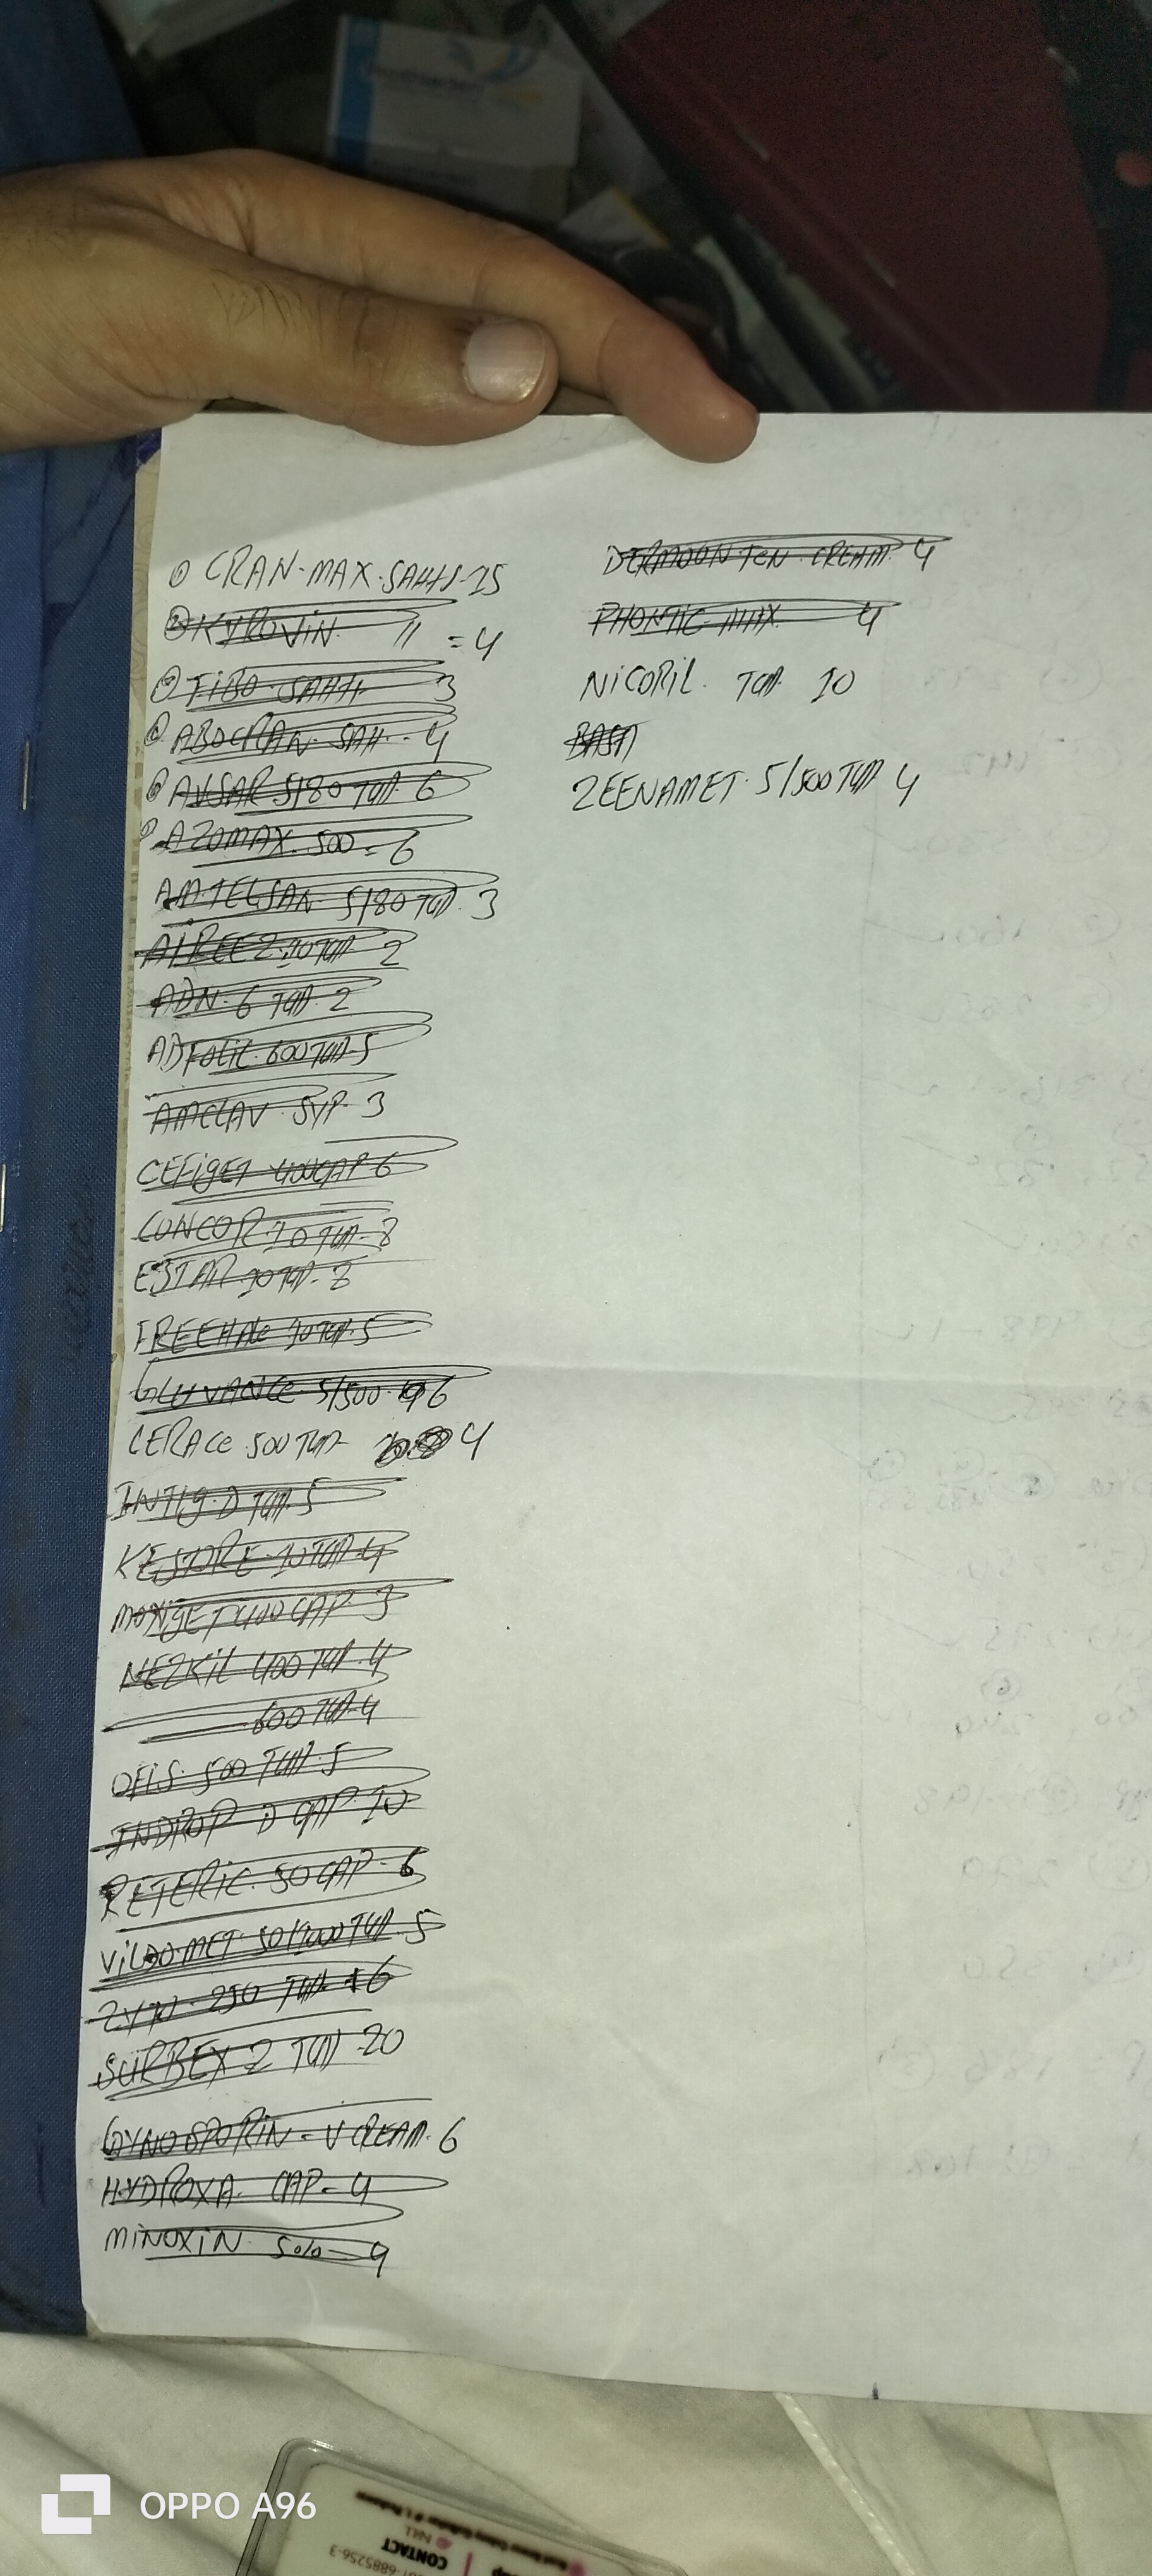 ① CRAN-MAX. SAHH-15
② KYROVIN 11 = 4
③ TIBO SAHH 3
④ ABOCRAN SAH. 4
⑤ AVSAR 5/80 TAB 6
AZOMAX. 500 = 6
AMTELSAN 5/80 TAB. 3
AIREEZ 10 TAB 2
ADN-6 TAB. 2
ADFOLIC 600 TAB-5
AMCLAV SYP. 3
CEFIGET 400 CAP 6
CONCOR 10 TAB-8
ESTAR 10 TAB. 8
FREEHALE 10 TAB. 5
GLUVANCE 5/500 6
CERACE 500 TAB 4
INTIG D TAB. 5
KESTORE 10 TAB-4
MOXIGET 400 CAP. 3
NEZKIL 400 TAB. 4
600 TAB-4
OFLS 500 TAB. 5
INDROP D CAP 10
RETERIC. 50 CAP-6
VILDOMET 50/1000 TAB. 5
250 TAB 6
SURBEX Z TAB 20
GYNOSPORIN - V CREAM. 6
HYDROXA. CAP-4
MINOXIN 5% - 4
CREAM 4
4
NICORIL. TAB. 10
ZEENAMET. 5/500 TAB 4
CONTACT
OPPO A96